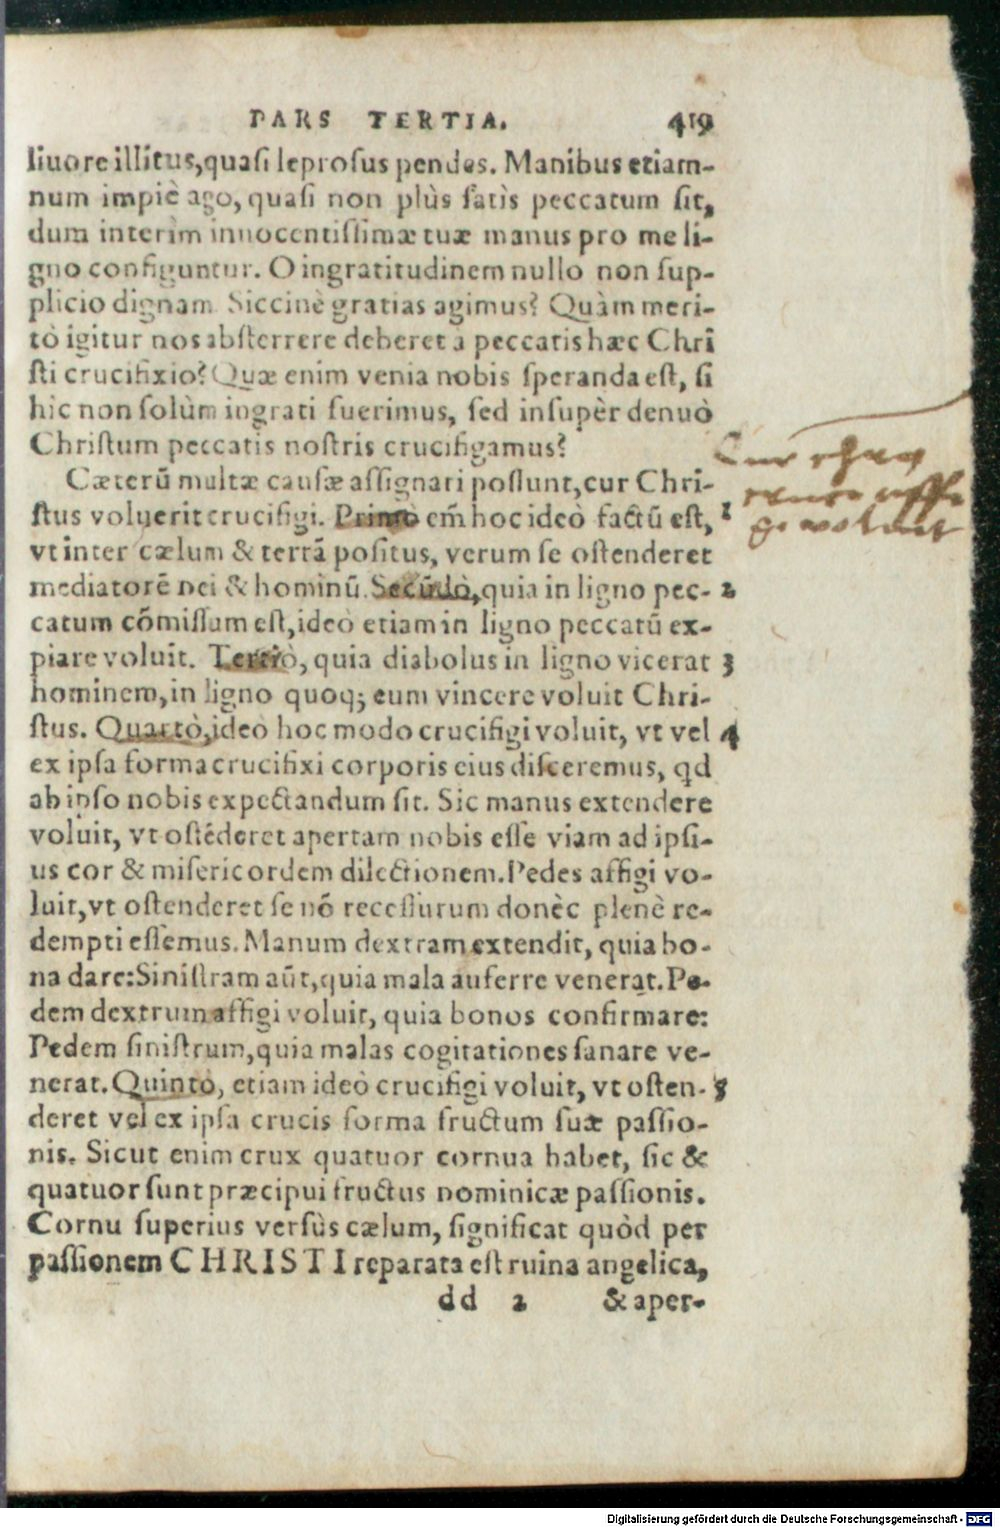 PARS TERTIA. 419
liuore illitus, quasi leprosus pendes. Manibus etiam-
num impiè ago, quasi non plùs satìs peccatum sit,
dum interìm innocentissimæ tuæ manus pro me li-
gno configuntur. O ingratitudinem nullo non sup-
plicio dignam. Siccinè gratias agimus? Quàm meri-
tò igitur nos absterrere deberet à peccatis hæc Chri
sti crucifixio? Quæ enim venia nobis speranda est, si
hic non solùm ingrati fuerimus, sed insupèr denuò
Christum peccatis nostris crucifigamus?
Cæterū multæ causæ assignari possunt, cur Chri-
Cur
stus voluerit crucifigi. Primò em̄ hoc ideò factū est, 1
voluit
vt inter cælum & terrā positus, verum se ostenderet
mediatorē Dei & hominū. Secūdò, quia in ligno pec- 2
catum cōmissum est, ideò etiam in ligno peccatū ex-
piare voluit. Tertiò, quia diabolus in ligno vicerat 3
hominem, in ligno quoq; eum vincere voluit Chri-
stus. Quartò, ideò hoc modo crucifigi voluit, vt vel 4
ex ipsa forma crucifixi corporis eius disceremus, qd
ab ipso nobis expectandum sit. Sic manus extendere
voluit, vt ostēderet apertam nobis esse viam ad ipsi-
us cor & misericordem dilectionem. Pedes affigi vo-
luit, vt ostenderet se nō recessurum donèc plenè re-
dempti essemus. Manum dextram extendit, quia bo-
na dare: Sinistram aūt, quia mala auferre venerat. Pe-
dem dextrum affigi voluit, quia bonos confirmare:
Pedem sinistrum, quia malas cogitationes sanare ve-
nerat. Quintò, etiam ideò crucifigi voluit, vt osten- 5
deret vel ex ipsa crucis forma fructum suæ passio-
nis. Sicut enim crux quatuor cornua habet, sic &
quatuor sunt præcipui fructus nominicæ passionis.
Cornu superius versùs cælum, significat quòd per
passionem CHRISTI reparata est ruina angelica,
dd 2 & aper-
Digitalisierung gefördert durch die Deutsche Forschungsgemeinschaft - DFG